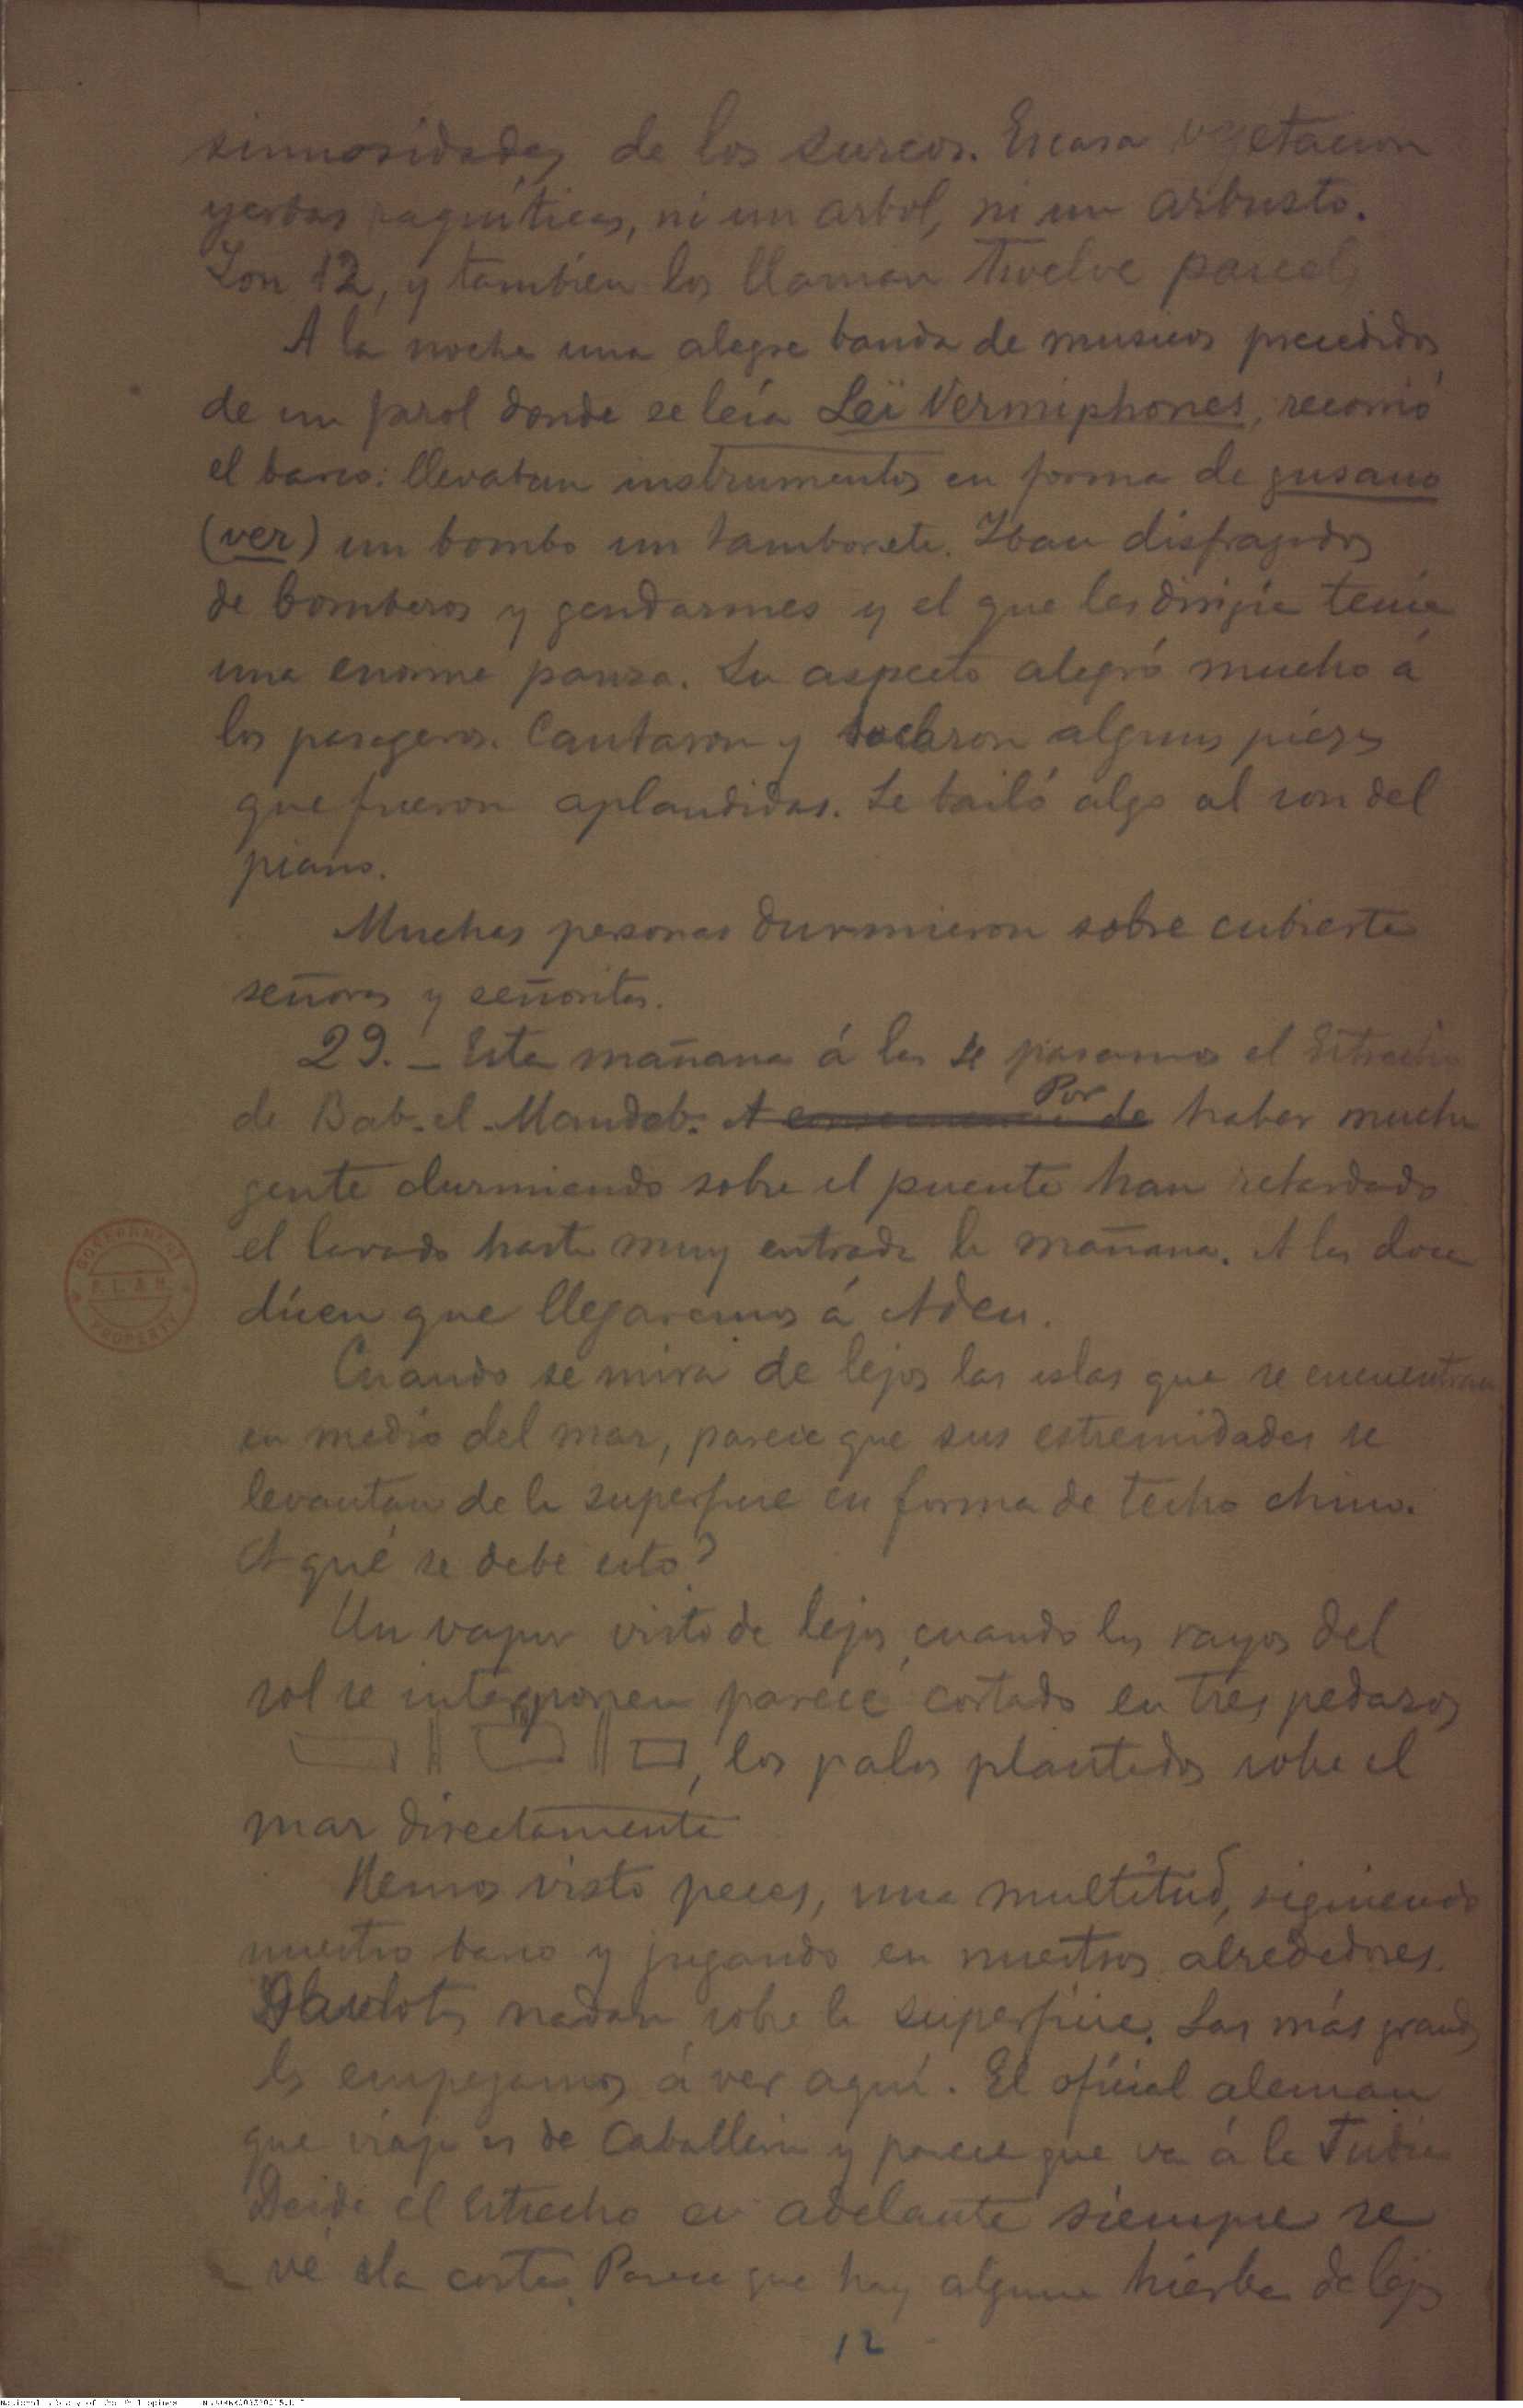 sinuosidades de los surcos. Escasa vegetacion
yerbas raquíticas, ni un arbol, ni un arbusto.
Son 12, y tambien los llaman Twelve parcels
A la noche una alegre banda de musicos precedidos
de un farol donde se leía Leï Vermiphones, recorrió
el barco: llevaban instrumentos en forma de gusano
(ver) un bombo un tamborete. Iban disfrazados
de bomberos y gendarmes y el que les dirijia tenía
una enorme panza. Su aspecto alegró mucho á
los pasageros. Cantaron y tocaron algunas piezas
que fueron aplaudidas. Se bailó algo al son del
piano.
Muchas personas durmieron sobre cubierta
señoras y señoritas.
29. _ Esta mañana á las pasamos el Estrecho
de Bab-el-Mandeb. A consecuencia de Por haber mucha
gente durmiendo sobre el puente han retardado
el lavado hasta muy entrada la mañana. A las doce
dicen que llegaremos á Aden.
Cuando se mira de lejos las islas que se encuentran
en medio del mar, parece que sus estremidades se
levantan de la superficie en forma de techo chino.
A qué se debe esto?
Un vapor visto de lejos cuando los rayos del
sol se interponen parece cortado en tres pedazos
, los palos plantados sobre el
mar directamente
Hemos visto peces, una multitud, siguiendo
nuestro barco y jugando en nuestros alrededores.
nadan sobre la superficie. Las más grandes
las empezamos á ver aquí. El oficial aleman
que viaja es de Caballeria y parece que va á la India
Desde el Estrecho en adelante siempre se
vé la costa. Parece que hay alguna hierba de lejos
12
GOVERNMENT
PROPERTY